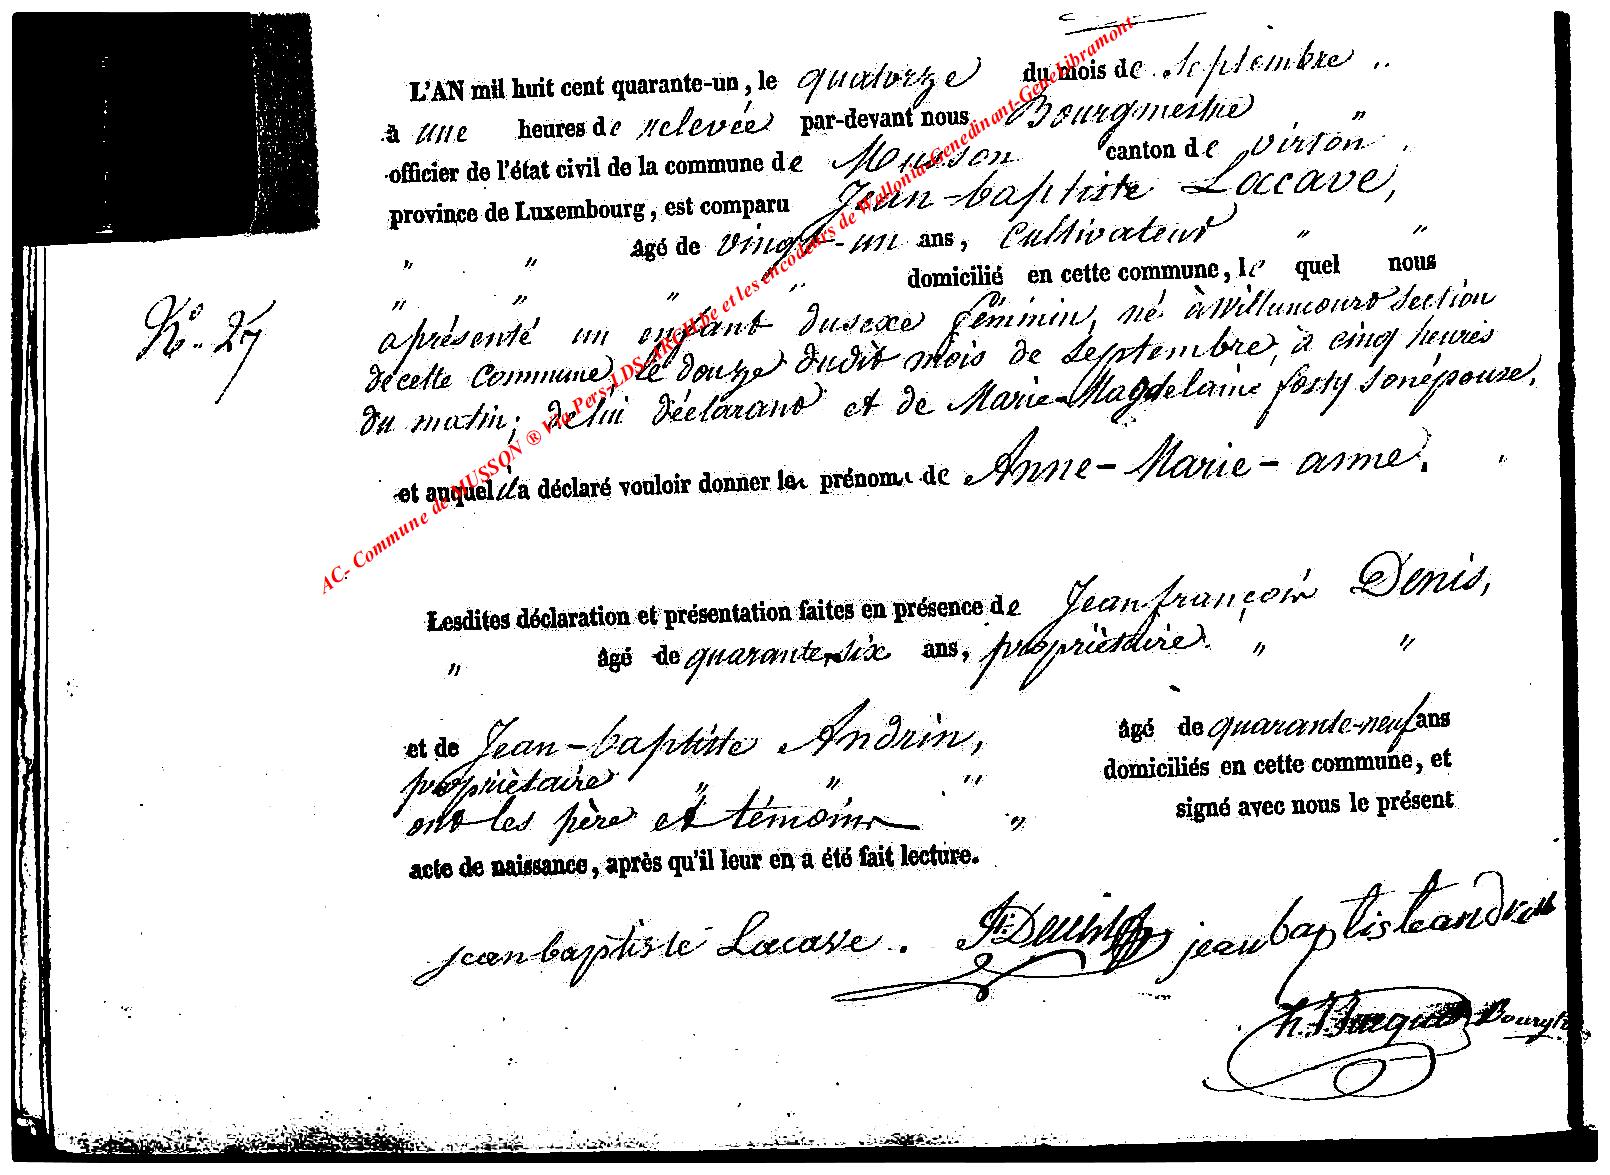 L'AN mil huit cent quarante-un, le quatorze du mois de septembre "
à une heures de relevée par-devant nous Bourgmestre "
officier de l'état civil de la commune de Musson canton de virton .
province de Luxembourg, est comparu Jean-baptiste Lacave,
" " âgé de vingt-un ans, Cultivateur " "
" " " " domicilié en cette commune, le quel nous
N.° 27
a présenté un enfant du sexe féminin, né à Willancourt Section
de cette Commune, le douze dudit mois de septembre, à cinq heures
du matin; de lui déclarant et de Marie-Magdelaine fosty son épouse.
et auquel il a déclaré vouloir donner les prénoms de Anne-Marie-anne. "
AC- Commune de MUSSON ® Via Pers-LDS-ARCH.be et les encodeurs de Wallonia-Genedinant-GeneLibramont
Lesdites déclaration et présentation faites en présence de Jean françois Denis,
" âgé de quarante-six ans, propriètaire. " "
et de Jean-baptiste Andrin, âgé de quarante-neuf ans
propriètaire " " " domiciliés en cette commune, et
ont les père et témoins " signé avec nous le présent
acte de naissance, après qu'il leur en a été fait lecture.
jean baptiste Lacave . Denis jean baptiste andrin
Bourgtre